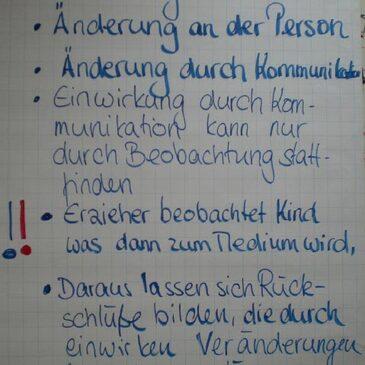 • Änderung an der Person
• Änderung durch Kommunikation
• Einwirkung durch Kom-
munikation kann nur
durch Beobachtung statt-
finden
!! • Erzieher beobachtet Kind
was dann zum Medium wird,
• Daraus lassen sich Rück-
schlüße bilden, die durch
einwirken Veränderungen